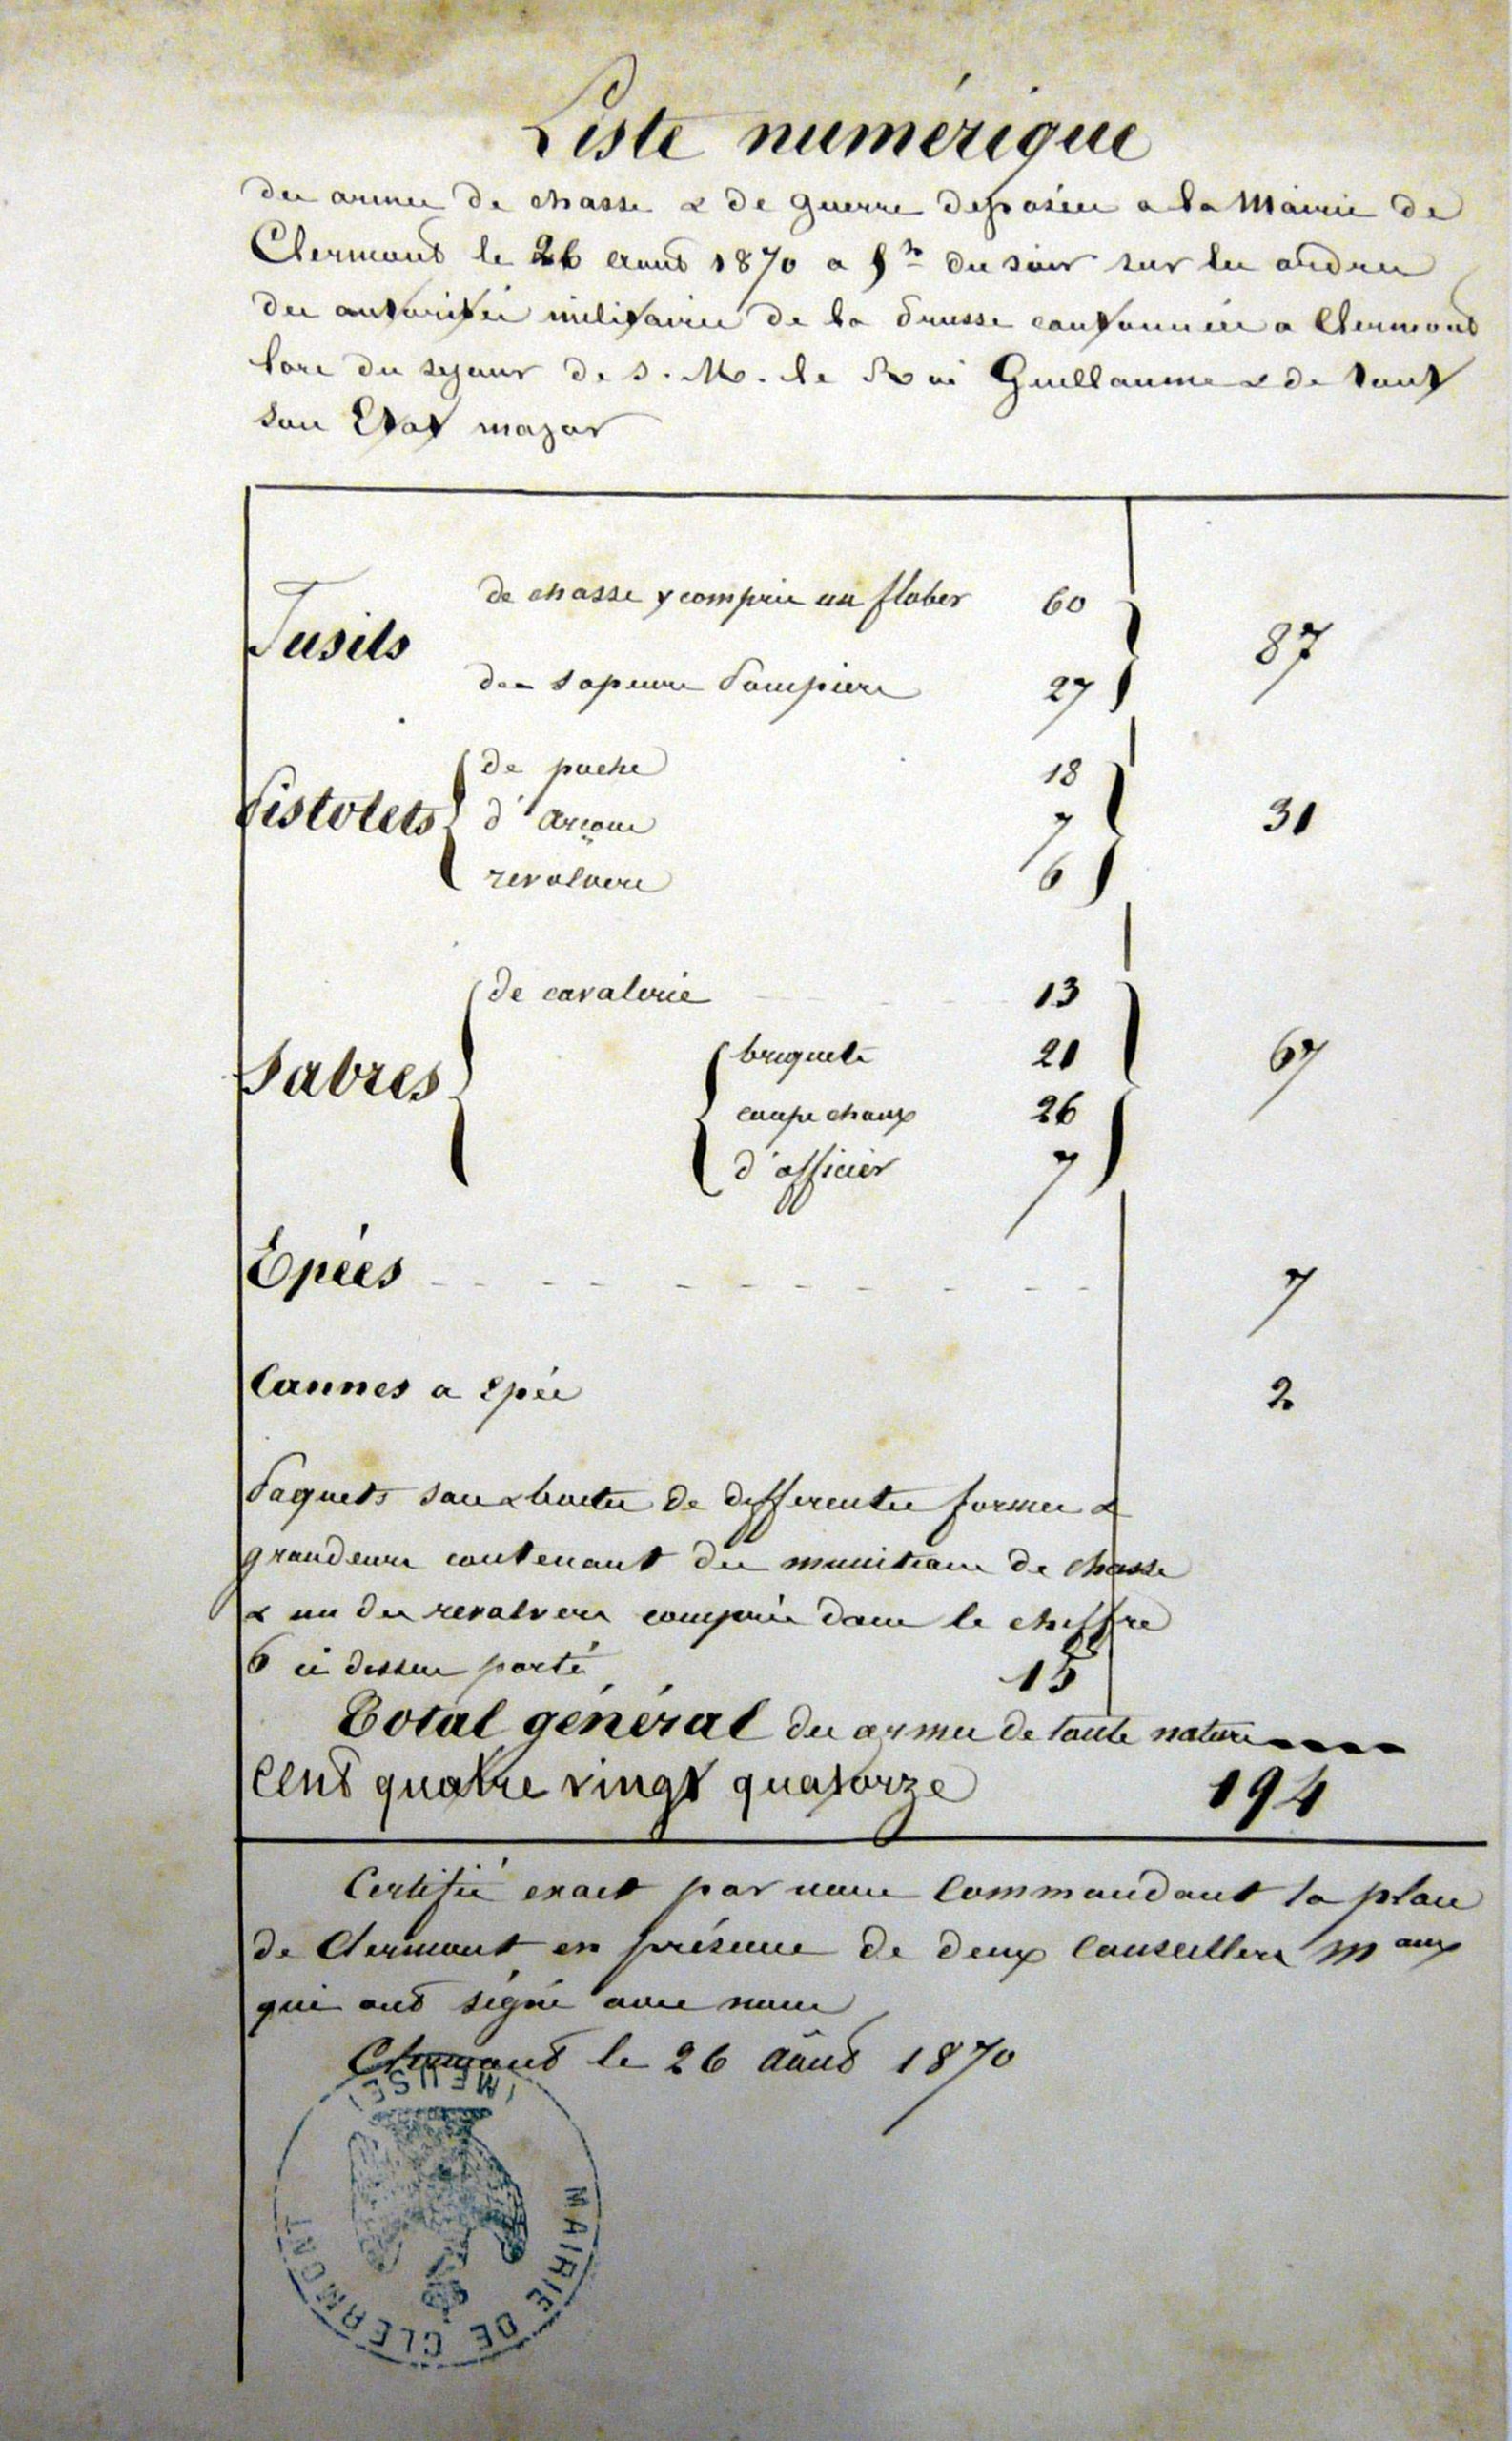 Liste numérique
des armes de chasse & de guerre déposées a la Mairie de
Clermont le 26 aout 1870 a 5h du soir sur les ordres
des autorités militaires de la Prusse cantonnées a Clermont
lors du sejour de S. M. le Roi Guillaume & de tout
son Etat major
Fusils
de chasse y compris un flober 60
des sapeurs Pompiers 27
87
Pistolets
de poche 18
d'arçons 7
revolvers 6
31
Sabres
de cavalerie 13
briquets 21
coupe choux 26
d'officier 7
67
Epées 7
Cannes a epée 2
Paquets sacs & boites de differentes formes &
grandeurs contenant des munitions de chasse
& un des revolvers compris dans le chiffre
6 ci dessus porté 15
Total général des armes de toute nature
cent quatre vingt quatorze 194
Certifié exact par nous Commandant la place
de Clermont en présence de deux Conseillers maux
qui ont signé avec nous
Clermont le 26 août 1870
MAIRIE DE CLERMONT
(MEUSE)